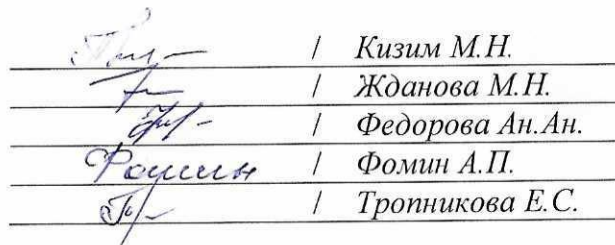 / Кизим М.Н.
/ Жданова М.Н.
/ Федорова Ан.Ан.
Фомин / Фомин А.П.
/ Тропникова Е.С.